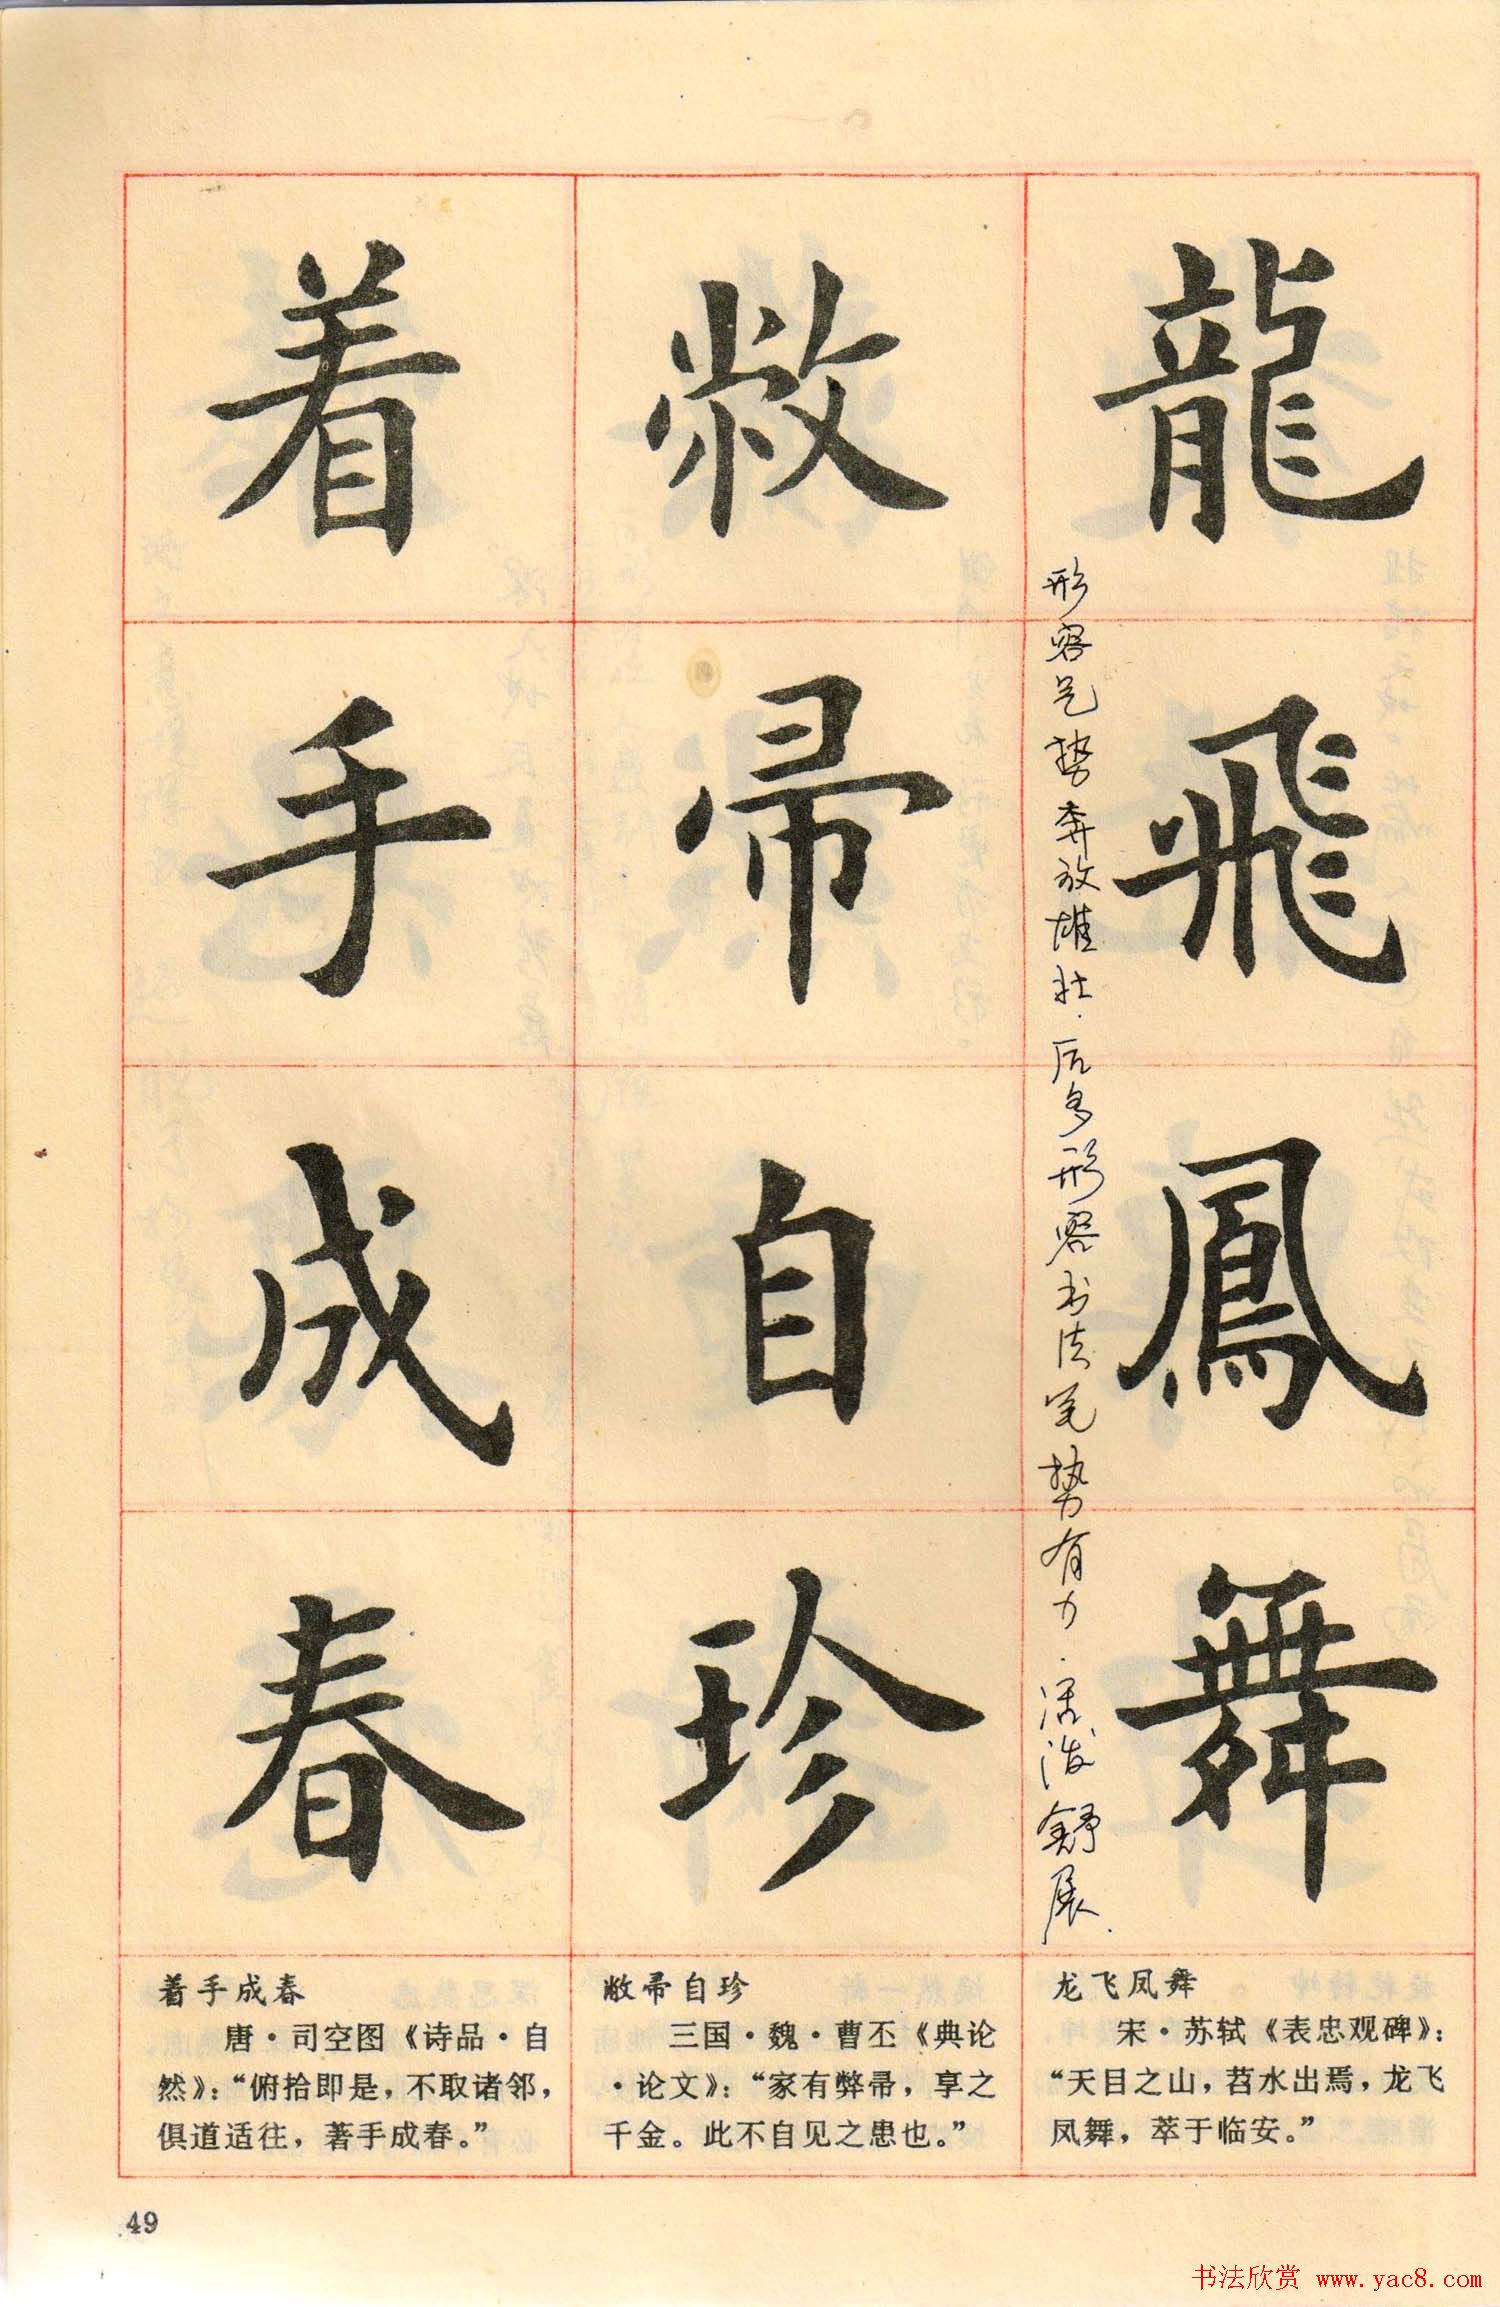 龍飛鳳舞
形容气势奔放雄壮.后多形容书法笔势有力.活泼舒展.
敝帚自珍
着手成春
龙飞凤舞
宋·苏轼《表忠观碑》:
“天目之山，苕水出焉，龙飞
凤舞，萃于临安。”
敝帚自珍
三国·魏·曹丕《典论
·论文》:“家有弊帚，享之
千金。此不自见之患也。”
着手成春
唐·司空图《诗品·自
然》:“俯拾即是，不取诸邻，
俱道适往，著手成春。”
49
书法欣赏 www.yac8.com